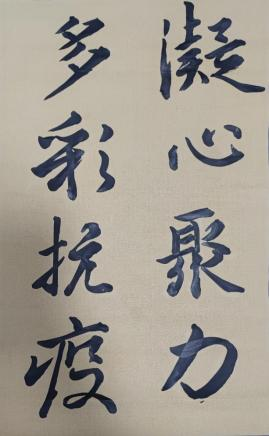 凝心聚力
多彩抗疫